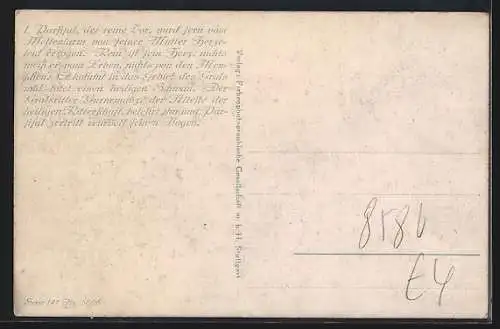 1. Parsifal, der reine Tor, wird fern vom
Weltenlärm von seiner Mutter Herze-
leid erzogen. Rein ist sein Herz, nichts
weiß er vom Leben, nichts von den Men-
schen. Er kommt in das Gebiet des Grals
und tötet einen heiligen Schwan. Der
Gralsritter Gurnemanz, der Älteste der
heiligen Ritterschaft, belehrt ihn und Par-
sifal zerbricht reuevoll seinen Bogen.
Verlag: Farbenphotographische Gesellschaft m. b. H. Stuttgart
Serie 147 No.
8586
E4